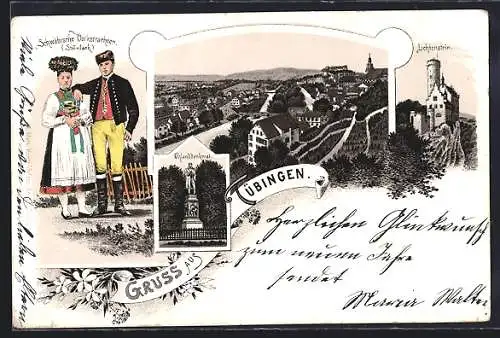 Schwäbische Volkstrachten.
(Steinlach.)
Lichtenstein.
Uhlanddenkmal.
GRUSS AUS
TÜBINGEN.
Herzlichen Glückwunsch
zum neuen Jahre
sendet
Maria Walter
Viele Grüße